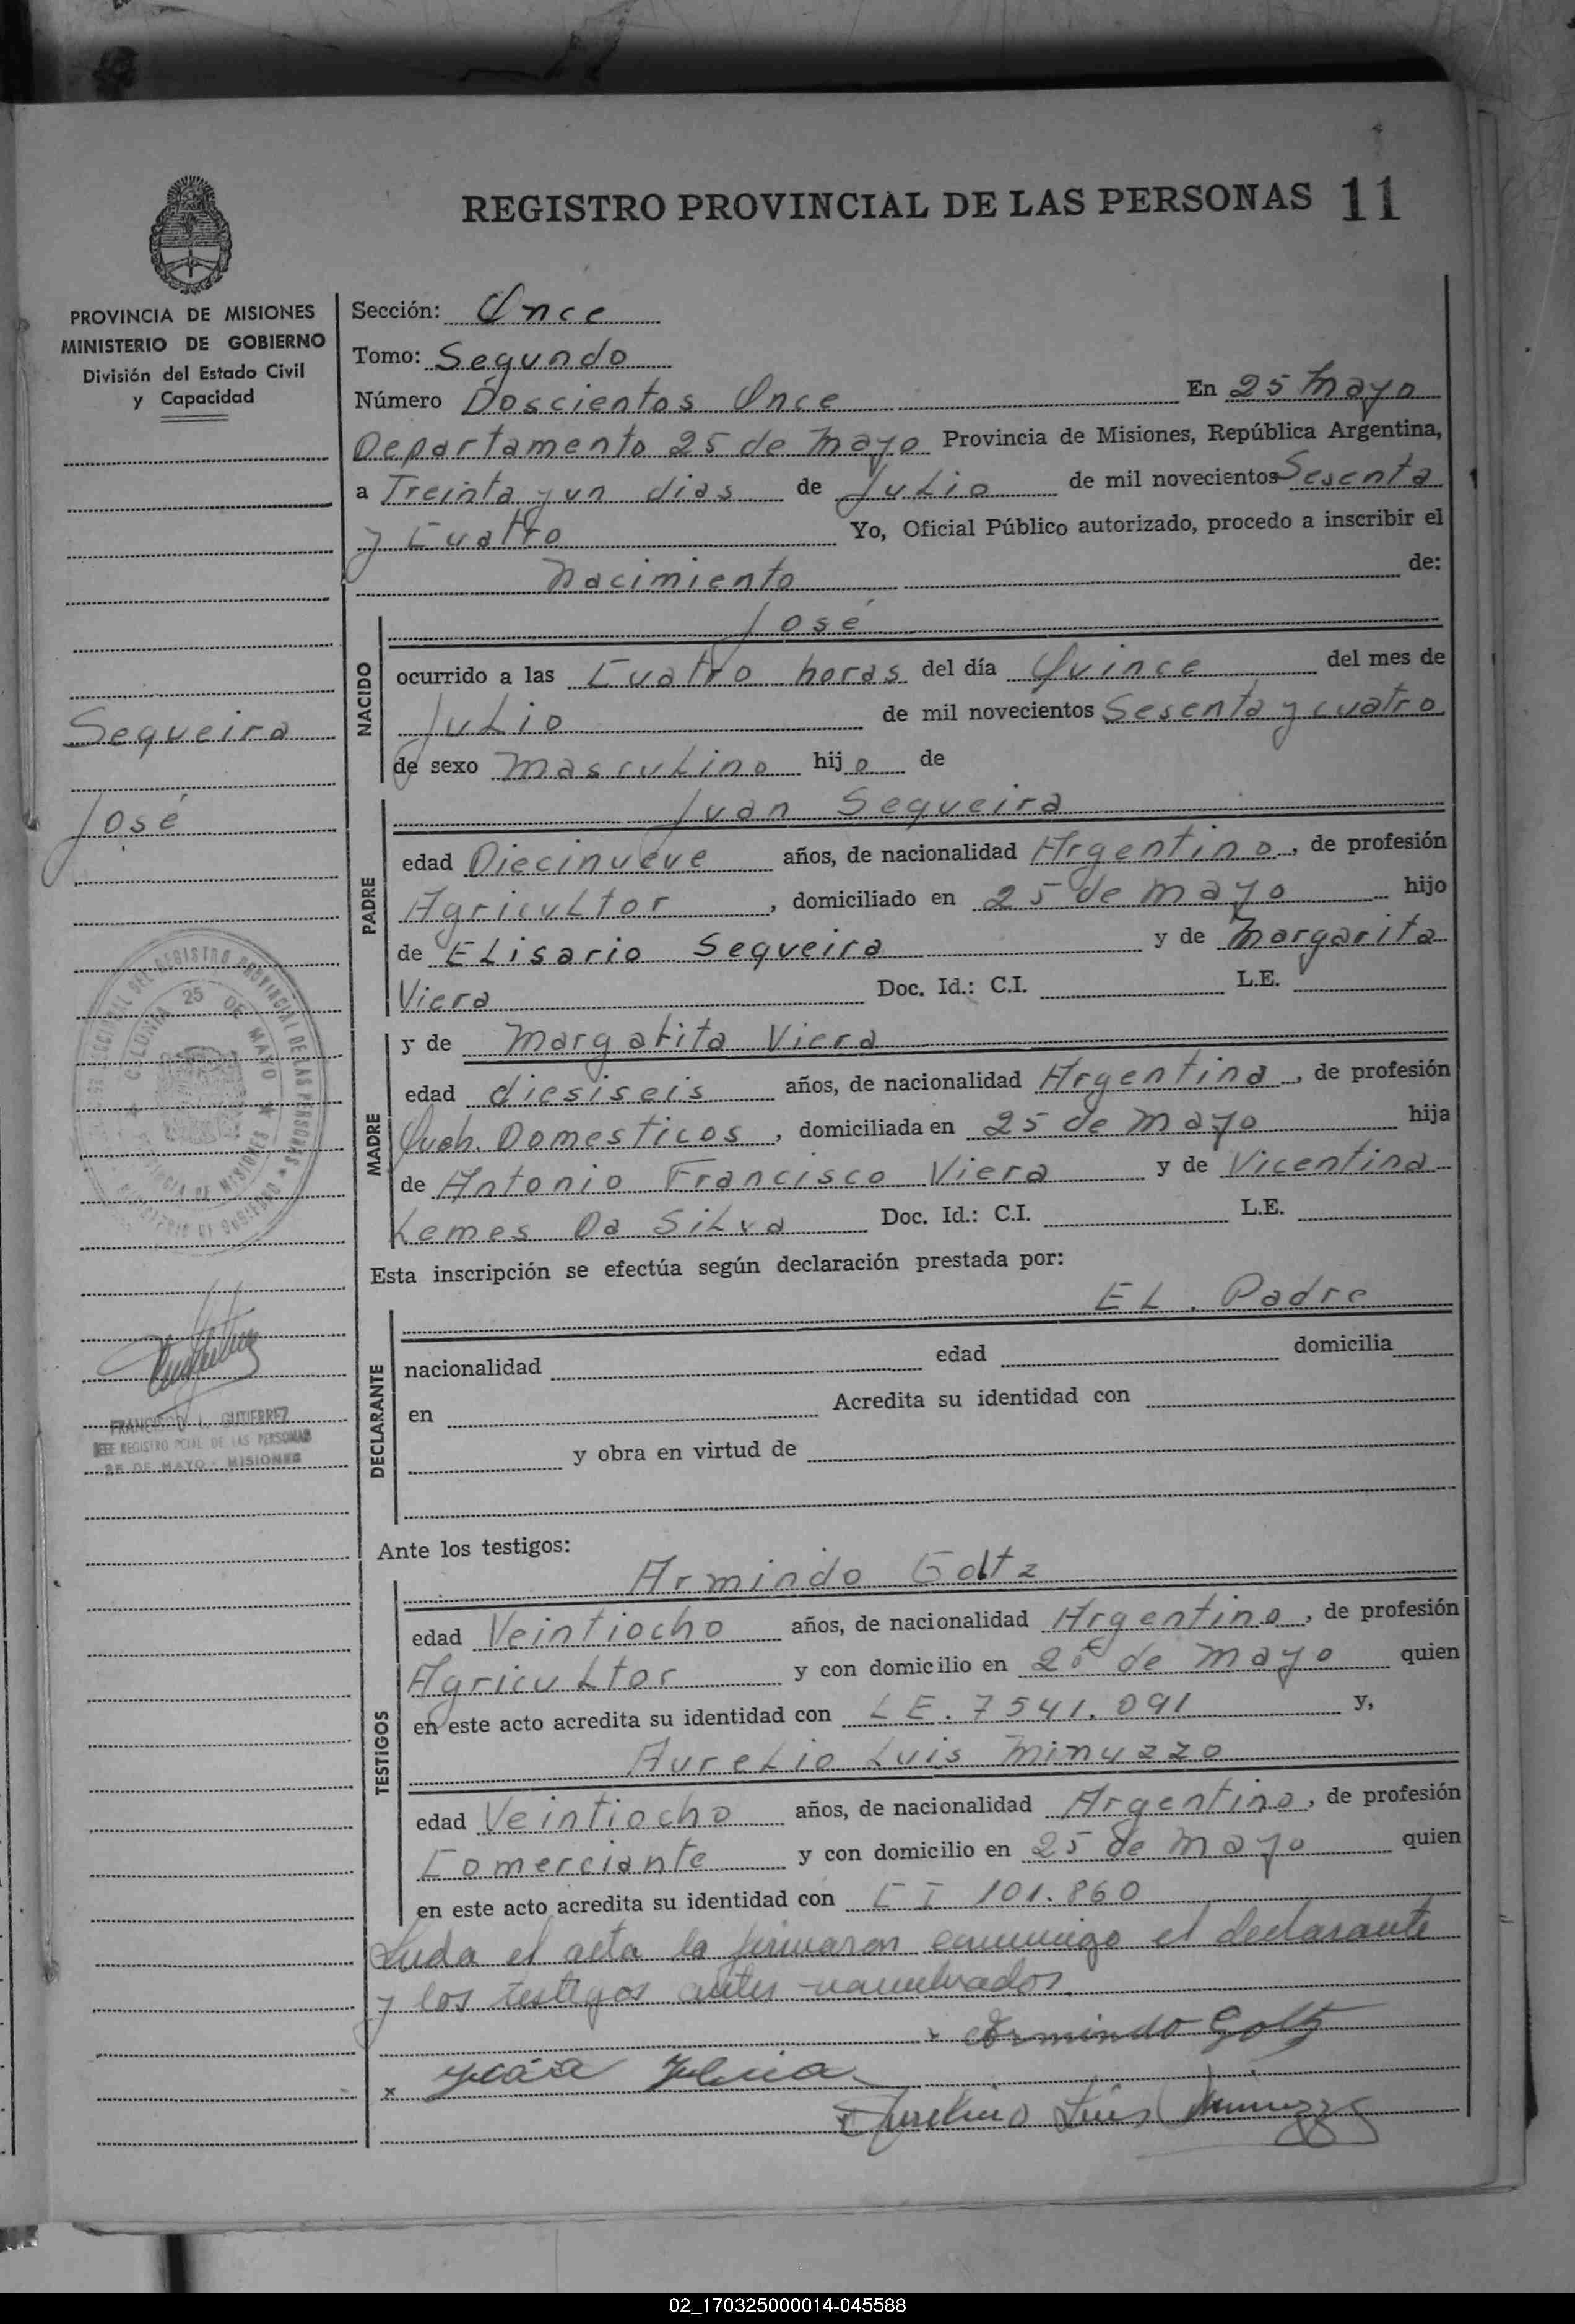 REGISTRO PROVINCIAL DE LAS PERSONAS 11
PROVINCIA DE MISIONES
MINISTERIO DE GOBIERNO
División del Estado Civil
y Capacidad
Sección: Once
Tomo: Segundo
Número Doscientos Once En 25 Mayo
Departamento 25 de Mayo Provincia de Misiones, República Argentina,
a Treinta y un dias de Julio de mil novecientos Sesenta
y Cuatro Yo, Oficial Público autorizado, procedo a inscribir el
Nacimiento de:
NACIDO
José
ocurrido a las Cuatro horas del día Quince del mes de
Julio de mil novecientos Sesenta y cuatro
de sexo Masculino hijo de
Sequeira
José
PADRE
Juan Sequeira
edad Diecinueve años, de nacionalidad Argentino, de profesión
Agricultor, domiciliado en 25 de Mayo hijo
de Elisario Sequeira y de Margarita
Viera Doc. Id.: C.I. L.E.
MADRE
y de Margarita Viera
edad diesiseis años, de nacionalidad Argentina, de profesión
Queh. Domesticos, domiciliada en 25 de Mayo hija
de Antonio Francisco Viera y de Vicentina
Lemes Da Silva Doc. Id.: C.I. L.E.
COLONIA 25 DE MAYO
Esta inscripción se efectúa según declaración prestada por:
DECLARANTE
El Padre
nacionalidad edad domicilia
en Acredita su identidad con
y obra en virtud de
FRANCISCO L. GUTIERREZ
JEFE REGISTRO PCIAL DE LAS PERSONAS
25 DE MAYO - MISIONES
Ante los testigos:
TESTIGOS
Armindo Goltz
edad Veintiocho años, de nacionalidad Argentino, de profesión
Agricultor y con domicilio en 25 de Mayo quien
en este acto acredita su identidad con LE. 7541.091 y,
Aurelio Luis Minuzzo
edad Veintiocho años, de nacionalidad Argentino, de profesión
Comerciante y con domicilio en 25 de Mayo quien
en este acto acredita su identidad con CI 101.860
Leida el acta la firmaron conmigo el declarante
y los testigos antes nombrados.
Armindo Goltz
x
Aurelio Luis Minuzzo
02_170325000014-045588